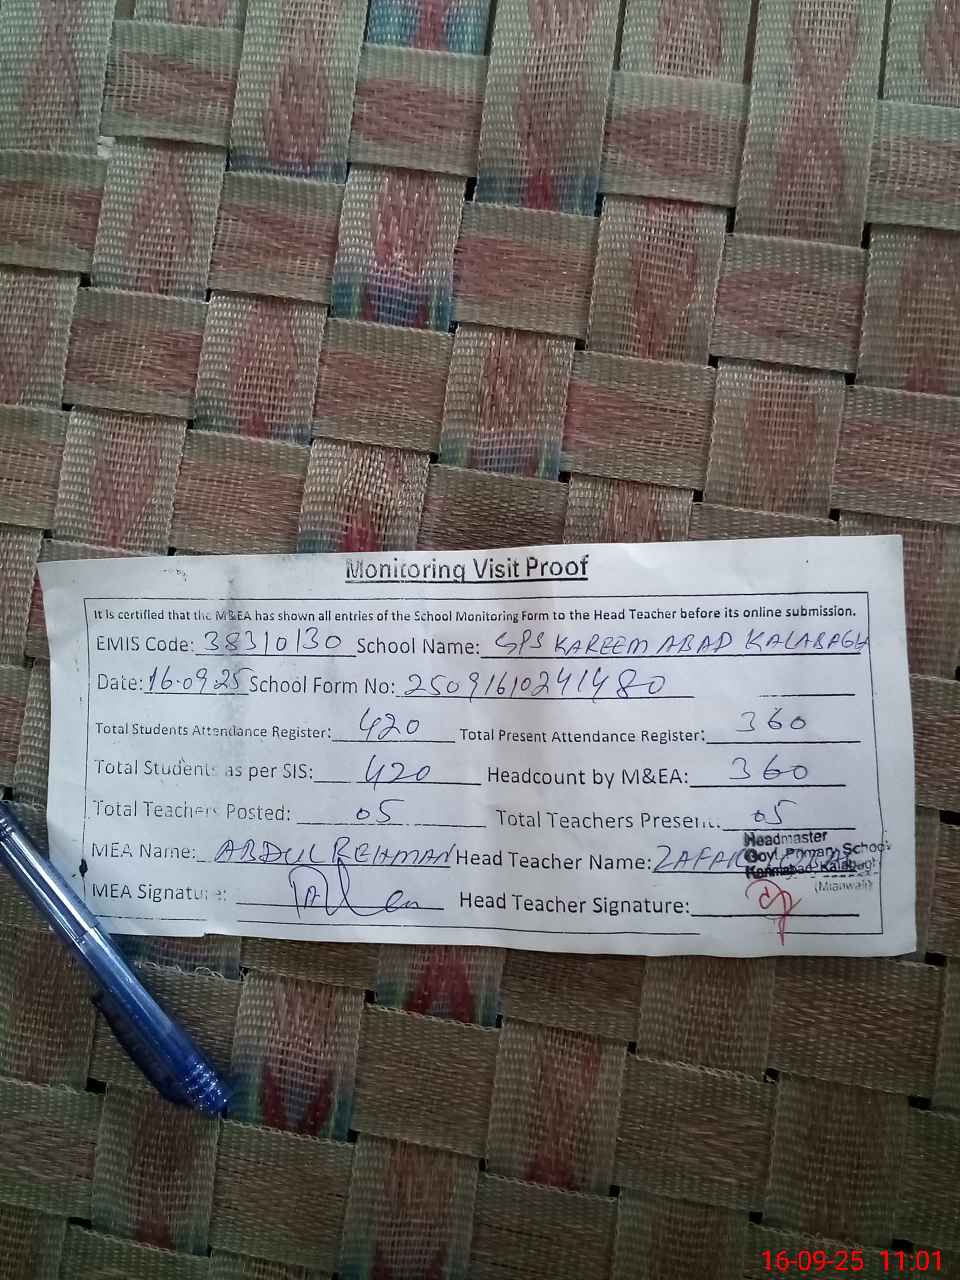 Monitoring Visit Proof
It is certified that the M&EA has shown all entries of the School Monitoring Form to the Head Teacher before its online submission.
EMIS Code: 38310130 School Name: GPS KAREEM ABAD KALABAGH
Date: 16.09.25 School Form No: 25091610241480
Total Students Attendance Register: 420 Total Present Attendance Register: 360
Total Students as per SIS: 420 Headcount by M&EA: 360
Total Teachers Posted: 05 Total Teachers Present: 05
MEA Name: ABDUL REHMAN Head Teacher Name: ZAFAR
Headmaster
Govt. Primary School
Karimabad, Kalabagh
(Mianwali)
MEA Signature: Head Teacher Signature:
16-09-25 11:01